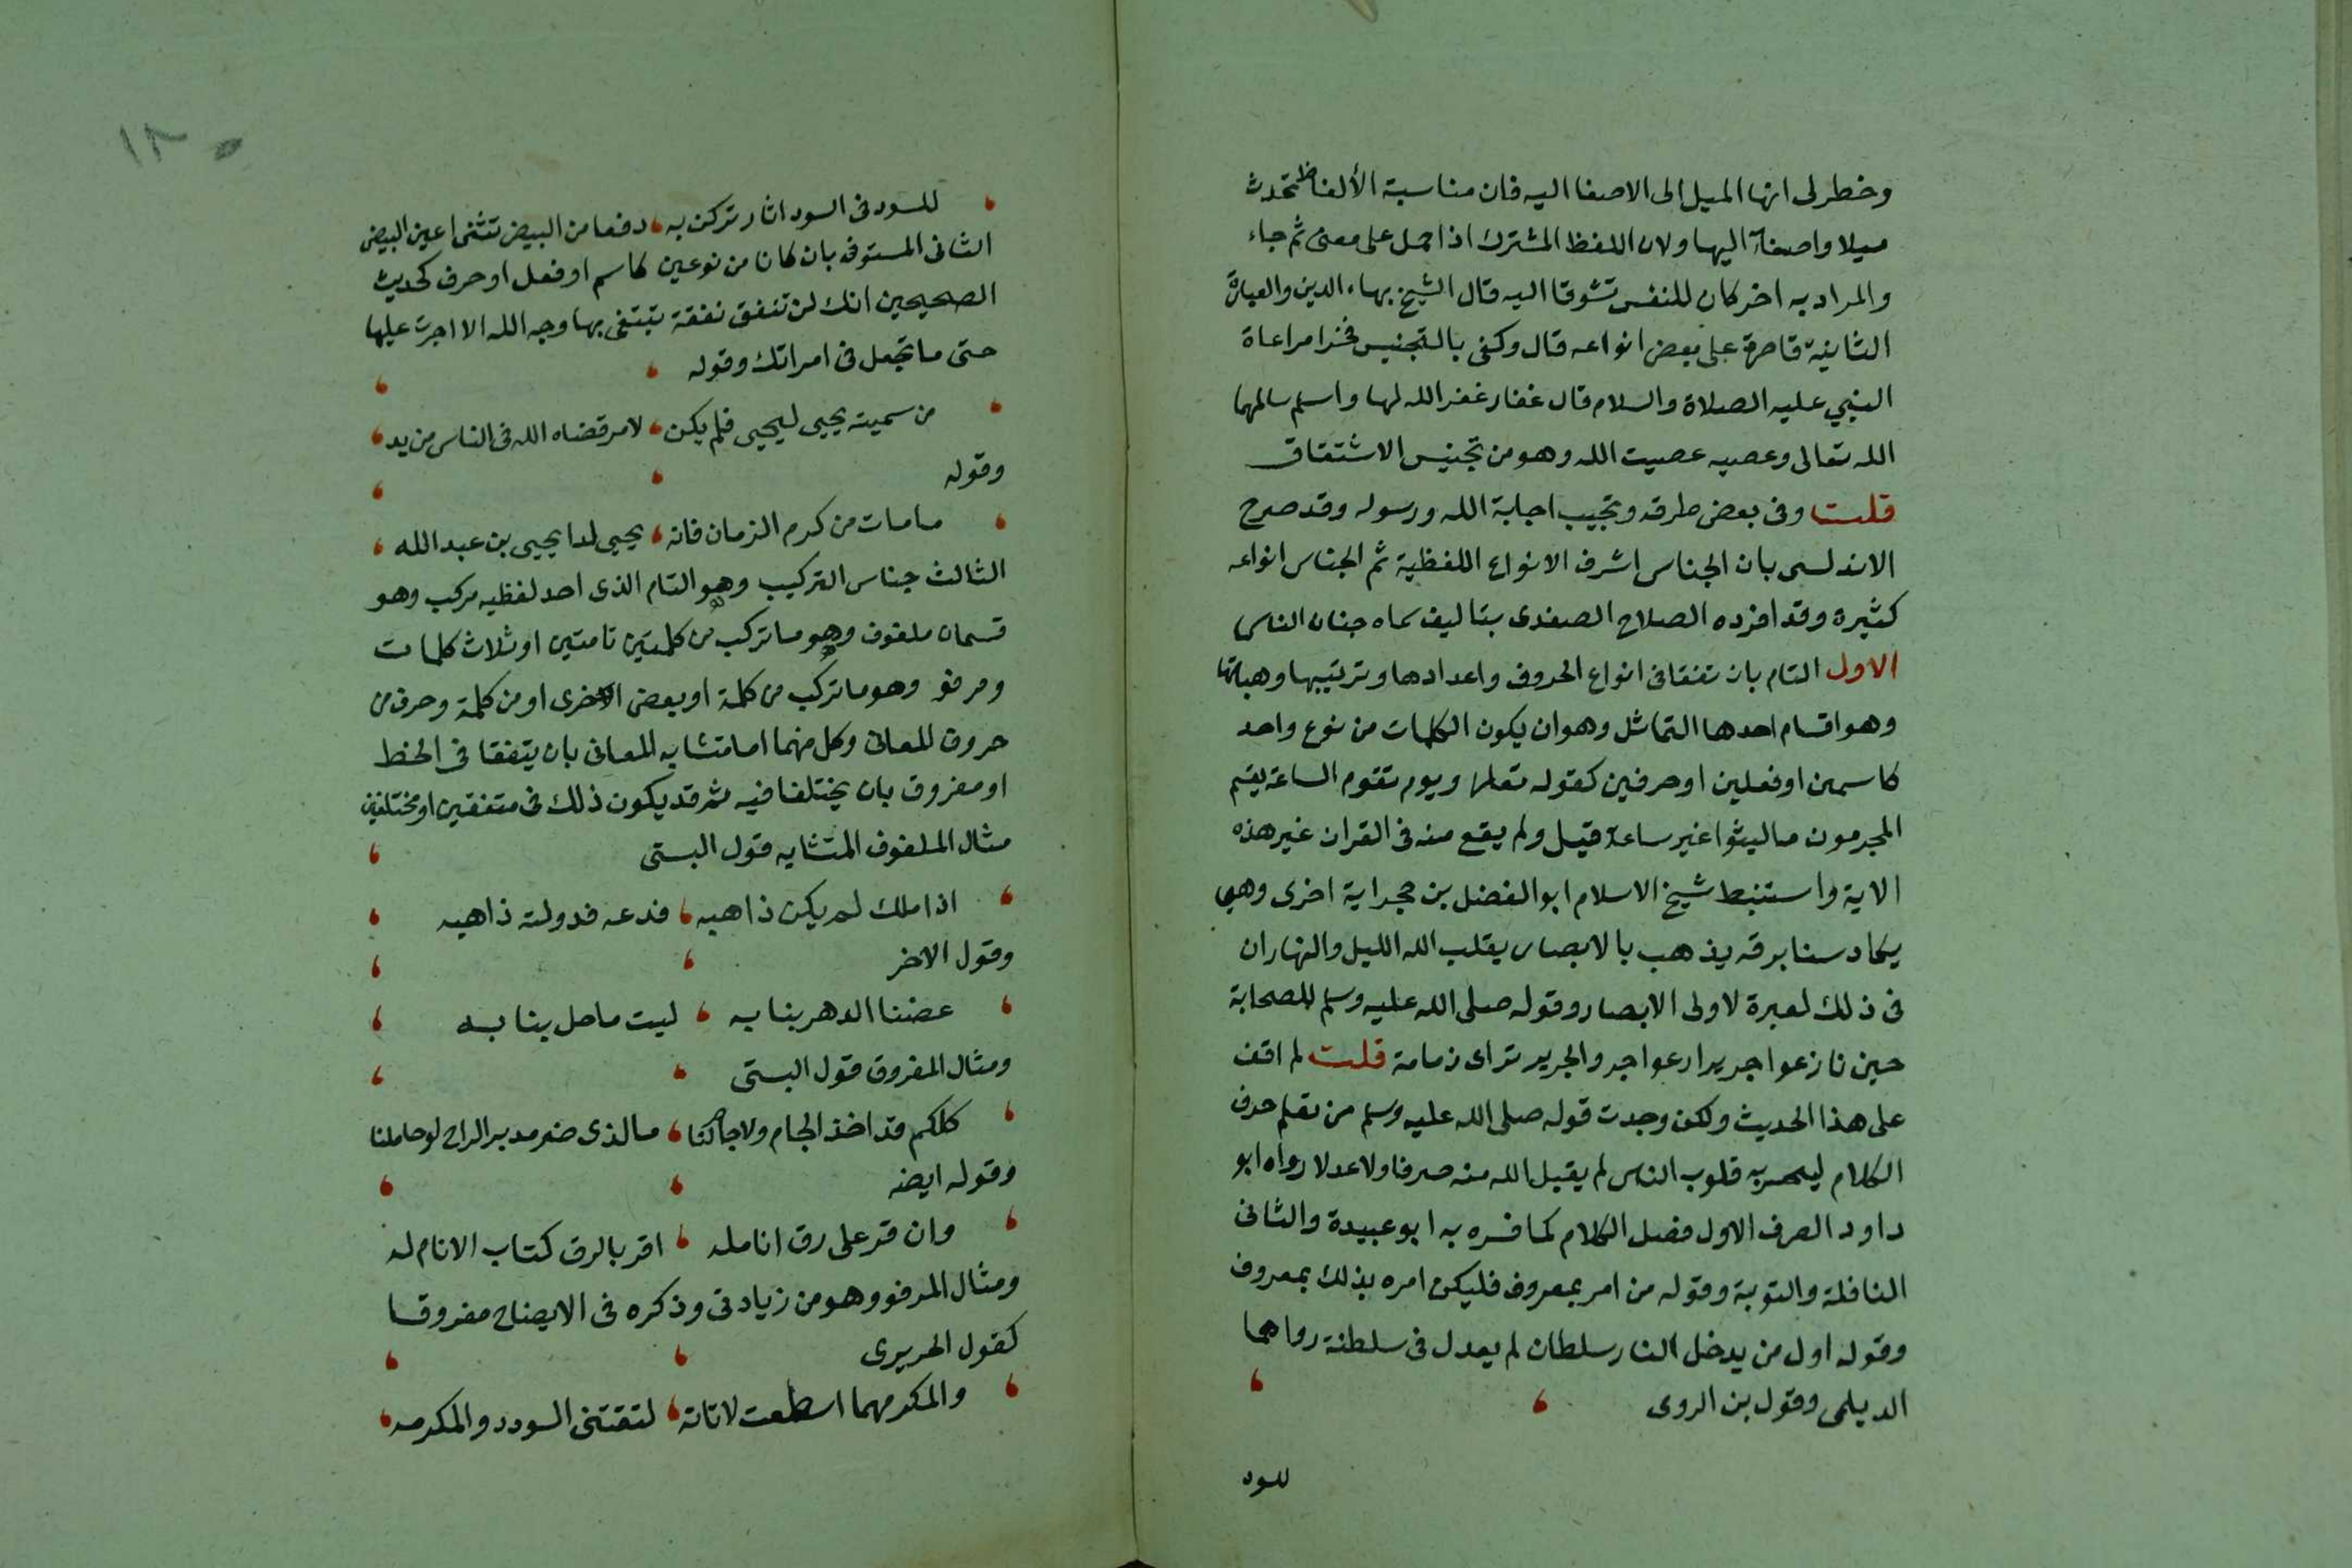 وخطر لى انها الميل الى الاصفا اليه فان مناسبة الألفاظ تحدث
ميلا واصفآء اليها ولان اللفظ المشترك اذا حمل على معنى ثم جاء
والمراد به اخر كان للنفس تشوقا اليه قال الشيخ بهاء الدين والعبارة
الثانية قاصرة على بعض انواعه قال وكفى بالتجنيس فخرا مراعاة
النبي عليه الصلاة والسلام قال غفار غفر الله لها واسلم سالمها
الله تعالى وعصيه عصيت الله وهو من تجنيس الاشتقاق
قلت وفى بعض طرقه وتجيب اجابة الله ورسوله وقد صرح
الاندلسى بان الجناس اشرف الانواع اللفظية ثم الجناس انواعه
كثيرة وقد افرده الصلاح الصفدى بتاليف سماه جنان الناس
الاول التام بان تفقا فى انواع الحروف واعدادها وترتيبها وهيائها
وهو اقسام احدها التماثل وهو ان يكون الكلمات من نوع واحد
كاسمين او فعلين او حرفين كقوله تعالى ويوم تقوم الساعة يقسم
المجرمون ما لبثوا غير ساعة قيل ولم يقع منه فى القران غير هذه
الاية واستنبط شيخ الاسلام ابو الفضل بن حجر اية اخرى وهي
يكاد سنا برقه يذهب بالابصار يقلب الله الليل والنهار ان
فى ذلك لعبرة لاولى الابصار وقوله صلى الله عليه وسلم للصحابة
حين نازعوا جريرا دعوا جر والجرير تراى زمامه قلت لم اقف
على هذا الحديث ولكن وجدت قوله صلى الله عليه وسلم من تعلم حرف
الكلام ليسحر به قلوب الناس لم يقبل الله منه صرفا ولا عدلا رواه ابو
داود الصرف الاول فضل الكلام كما فسره به ابو عبيدة والثانى
النافلة والتوبة وقوله من امر بمعروف فليكن امره بذلك بمعروف
وقوله اول من يدخل النار سلطان لم يعدل فى سلطنة رواهما
الديلمى وقول بن الروى
للسود
١٢٠
للسود فى السود اثار تركن به دفعا من البيض تثنى اعين البيض
الثانى المستوفى بان كانا من نوعين كاسم او فعل او حرف كحديث
الصحيحين انك لن تنفق نفقة تبتغى بها وجه الله الا اجرت عليها
حتى ما تجعل فى امراتك وقوله
من سميته يحيى ليحيى فلم يكن لامر قضاه الله فى الناس من يد
وقوله
ما مات من كرم الزمان فانه يحيى لدا يحيى بن عبد الله
الثالث جناس التركيب وهو التام الذى احد لفظيه مركب وهو
قسمان ملفوف وهو ما تركب من كلمتين تامتين او ثلاث كلمات
ومرفو وهو ما تركب من كلمة او بعض الاخرى او من كلمة وحرف من
حروف المعانى وكل منهما اما متشابه المعانى بان يتفقا فى الخط
او مفروق بان يختلفا فيه ثم قد يكون ذلك فى متفقين او مختلفين
مثال الملفوف المتشابه قول البستى
اذا ملك لم يكن ذاهبه فدعه فدولته ذاهبه
وقول الاخر
عضنا الدهر بنابه ليت ما حل بنا به
ومثال المفروق قول البستى
كلكم قد اخذ الجام ولا جام لنا ما الذى ضر مدير الراح لو جاملنا
وقوله ايضه
وان قر على رق انامله اقر بالرق كتاب الانام له
ومثال المرفو وهو من زيادتى وذكره فى الايضاح مفروقا
كقول الحريرى
والمكر مهما اسطعت لا تاته لتقتنى السودد والمكرمه